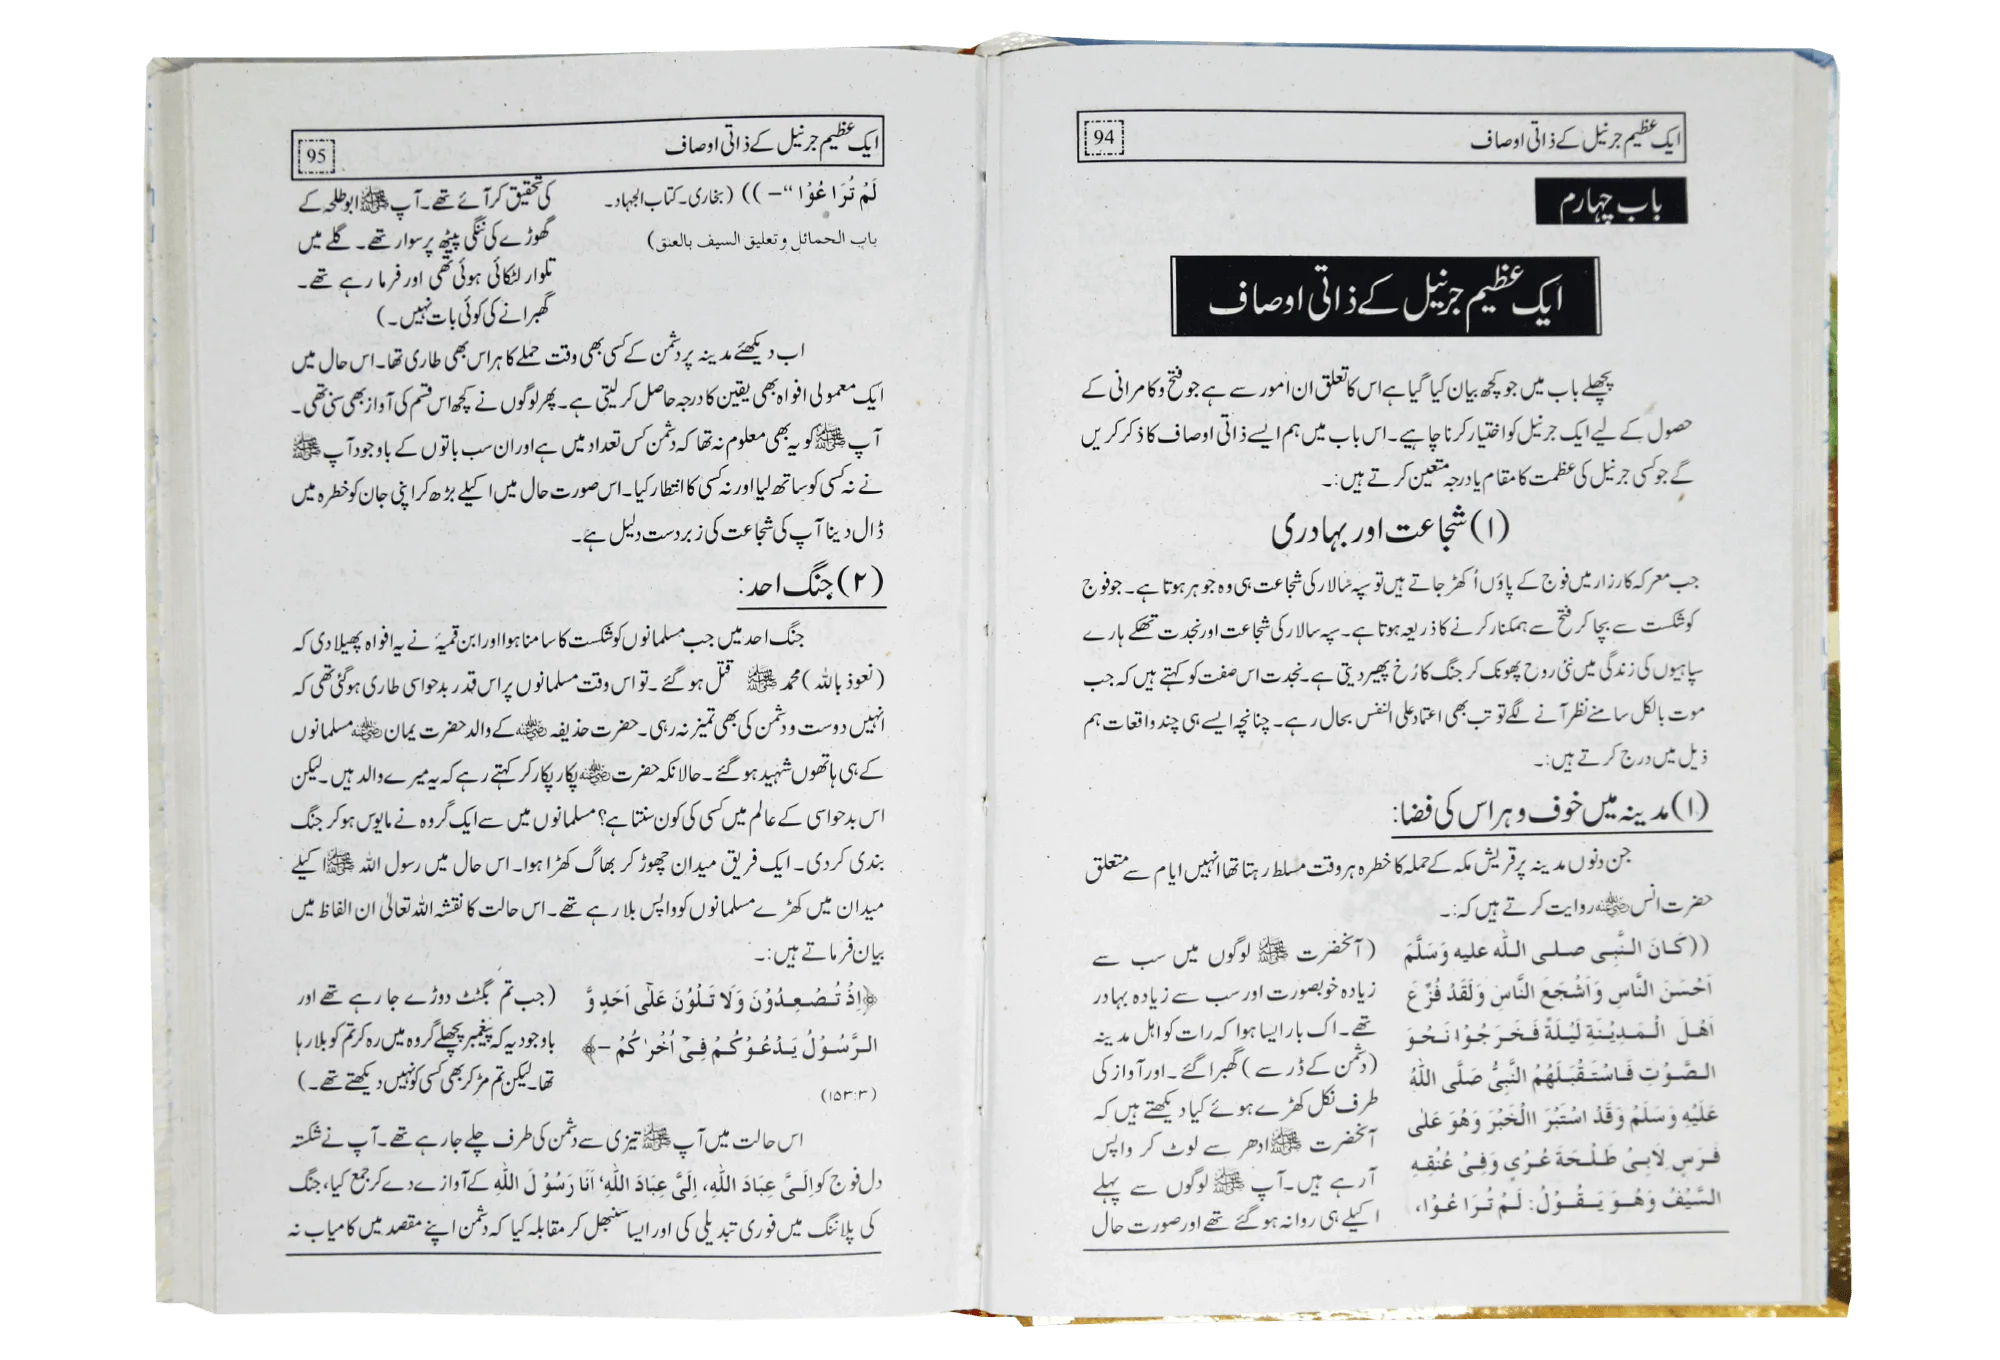 ایک عظیم جرنیل کے ذاتی اوصاف
94
باب چہارم
ایک عظیم جرنیل کے ذاتی اوصاف
پچھلے باب میں جو کچھ بیان کیا گیا ہے اس کا تعلق ان امور سے ہے جو فتح و کامرانی کے
حصول کے لیے ایک جرنیل کو اختیار کرنا چاہیے۔ اس باب میں ہم ایسے ذاتی اوصاف کا ذکر کریں
گے جو کسی جرنیل کی عظمت کا مقام یا درجہ متعین کرتے ہیں:۔
(۱) شجاعت اور بہادری
جب معرکہ کارزار میں فوج کے پاؤں اُکھڑ جاتے ہیں تو سپہ سالار کی شجاعت ہی وہ جوہر ہوتا ہے۔ جو فوج
کو شکست سے بچا کر فتح سے ہمکنار کرنے کا ذریعہ ہوتا ہے۔ سپہ سالار کی شجاعت اور نجدت تھکے ہارے
سپاہیوں کی زندگی میں نئی روح پھونک کر جنگ کا رُخ پھیر دیتی ہے۔ نجدت اس صفت کو کہتے ہیں کہ جب
موت بالکل سامنے نظر آنے لگے تو تب بھی اعتماد علی النفس بحال رہے۔ چنانچہ ایسے ہی چند واقعات ہم
ذیل میں درج کرتے ہیں:۔
(۱) مدینہ میں خوف و ہراس کی فضا:
جن دنوں مدینہ پر قریش مکہ کے حملہ کا خطرہ ہر وقت مسلط رہتا تھا انہیں ایام سے متعلق
حضرت انس ؓ روایت کرتے ہیں کہ:۔
((کَانَ النَّبِی صلی اللہ علیہ وَسَلَّمَ
اَحْسَنَ النَّاسِ وَاَشْجَعَ النَّاسَ وَلَقَدْ فُزِّعَ
اَهْلَ الْمَدِيْنَةِ لَيْلَةً فَخَرَجُوْا نَحْوَ
الصَّوْتِ فَاسْتَقْبَلَهُمُ النَّبِیُّ صَلَّی اللّٰہُ
عَلَيْهِ وَسَلَّمْ وَقَدْ اسْتَبَرَ االْخَبْرَ وَهُوَ عَلٰی
فَرَسٍ لِاَبِیْ طَلْحَةَ عُرْیٍ وَفِیْ عُنْقِهٖ
السَّيْفُ وَهُوَ يَقُوْلُ: لَمْ تُرَاعُوْا،
(آنحضرت ﷺ لوگوں میں سب سے
زیادہ خوبصورت اور سب سے زیادہ بہادر
تھے۔ اک بار ایسا ہوا کہ رات کو اہل مدینہ
(دشمن کے ڈر سے) گھبرا گئے۔ اور آواز کی
طرف نکل کھڑے ہوئے کیا دیکھتے ہیں کہ
آنحضرت ﷺ ادھر سے لوٹ کر واپس
آرہے ہیں۔ آپ ﷺ لوگوں سے پہلے
اکیلے ہی روانہ ہو گئے تھے اور صورت حال
ایک عظیم جرنیل کے ذاتی اوصاف
95
لَمْ تُرَاعُوْا“۔)) (بخاری۔ کتاب الجہاد۔
باب الحمائل و تعليق السيف بالعنق)
کی تحقیق کر آئے تھے۔ آپ ﷺ ابو طلحہ کے
گھوڑے کی ننگی پیٹھ پر سوار تھے۔ گلے میں
تلوار لٹکائی ہوئی تھی اور فرما رہے تھے۔
گھبرانے کی کوئی بات نہیں۔)
اب دیکھئے مدینہ پر دشمن کے کسی بھی وقت حملے کا ہراس بھی طاری تھا۔ اس حال میں
ایک معمولی افواہ بھی یقین کا درجہ حاصل کر لیتی ہے۔ پھر لوگوں نے کچھ اس قسم کی آواز بھی سنی تھی۔
آپ ﷺ کو یہ بھی معلوم نہ تھا کہ دشمن کس تعداد میں ہے اور ان سب باتوں کے باوجود آپ ﷺ
نے نہ کسی کو ساتھ لیا اور نہ کسی کا انتظار کیا۔ اس صورت حال میں اکیلے بڑھ کر اپنی جان کو خطرہ میں
ڈال دینا آپ کی شجاعت کی زبردست دلیل ہے۔
(۲) جنگ احد:
جنگ احد میں جب مسلمانوں کو شکست کا سامنا ہوا اور ابن قمیہ نے یہ افواہ پھیلا دی کہ
(نعوذ باللہ) محمد ﷺ قتل ہو گئے۔ تو اس وقت مسلمانوں پر اس قدر بدحواسی طاری ہو گئی تھی کہ
انہیں دوست و دشمن کی بھی تمیز نہ رہی۔ حضرت حذیفہ ؓ کے والد حضرت یمان ؓ مسلمانوں
کے ہی ہاتھوں شہید ہو گئے۔ حالانکہ حضرت ؓ پکار پکار کر کہتے رہے کہ یہ میرے والد ہیں۔ لیکن
اس بدحواسی کے عالم میں کسی کی کون سنتا ہے؟ مسلمانوں میں سے ایک گروہ نے مایوس ہو کر جنگ
بندی کر دی۔ ایک فریق میدان چھوڑ کر بھاگ کھڑا ہوا۔ اس حال میں رسول اللہ ﷺ اکیلے
میدان میں کھڑے مسلمانوں کو واپس بلا رہے تھے۔ اس حالت کا نقشہ اللہ تعالیٰ ان الفاظ میں
بیان فرماتے ہیں:۔
﴿اِذْ تُصْعِدُوْنَ وَلَا تَلْوٗنَ عَلٰٓی اَحَدٍ وَّ
الرَّسُوْلُ یَدْعُوْکُمْ فِیْٓ اُخْرٰکُمْ ۔﴾
(۱۵۳:۳)
(جب تم بگٹٹ دوڑے جا رہے تھے اور
باوجودیہ کہ پیغمبر پچھلے گروہ میں رہ کر تم کو بلا رہا
تھا۔ لیکن تم مڑ کر بھی کسی کو نہیں دیکھتے تھے۔)
اس حالت میں آپ ﷺ تیزی سے دشمن کی طرف چلے جا رہے تھے۔ آپ نے شکستہ
دل فوج کو اِلَیَّ عِبَادَ اللّٰہِ، اِلَیَّ عِبَادَ اللّٰہِ‘ اَنَا رَسُوْلَ اللّٰہِ کے آوازے دے کر جمع کیا، جنگ
کی پلاننگ میں فوری تبدیلی کی اور ایسا سنبھل کر مقابلہ کیا کہ دشمن اپنے مقصد میں کامیاب نہ